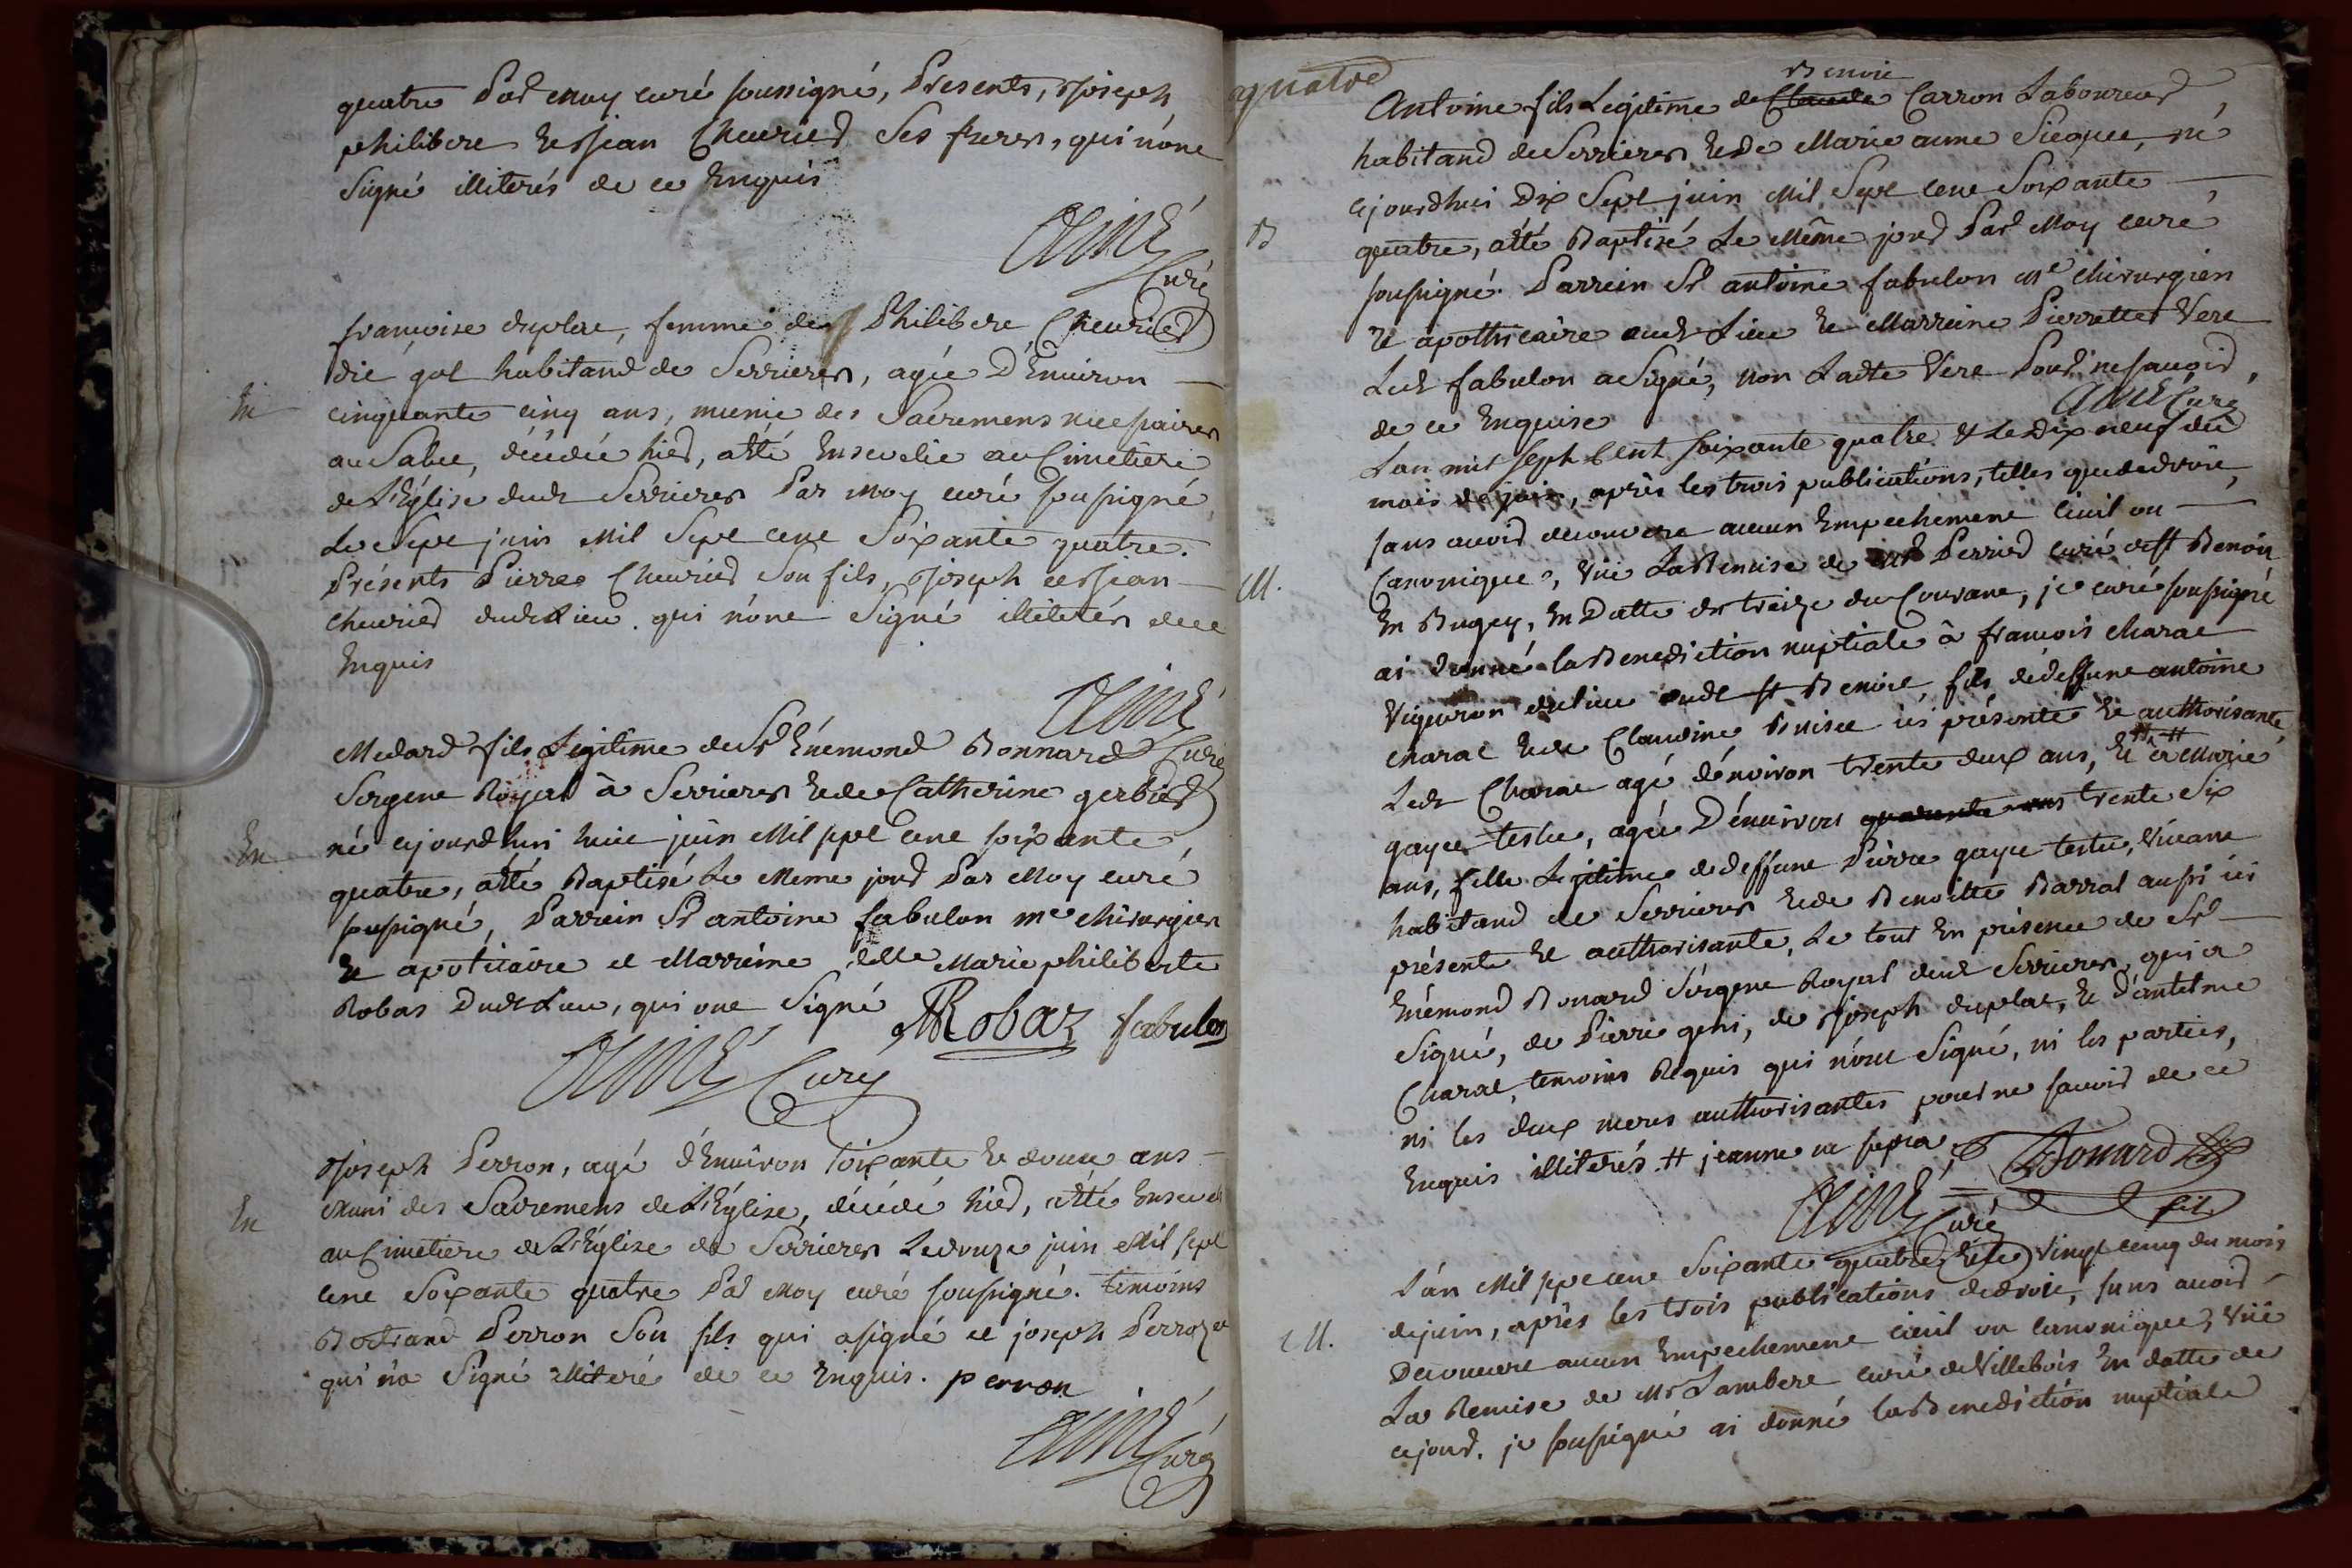 quatre Par moy curé soussigné, Presents, Joseph
philibert et Jean Cheurier ses freres, qui n'ont
Signé illiterés de ce Enquis
Aimé
Curé
françoise duplat, femme de Philibert Cheurier
dit gol habitand de Serrieres, agée D'Environ
En cinquante cinq ans, munie des Sacremens necessaires
au Salut, décédée hier, atté Ensevelie au Cimetiere
de L'Église dudt Serrieres Par moy curé soussigné
Le Sept juin Mil Sept cent Soixante quatre.
Présents Pierre Cheurier Son fils, Joseph et Jean
cheurier dudt Lieu qui n'ont Signé illiterés de ce
Enquis
Aimé
Curé
Medard fils Legitime de Sr Enemond Bonnard
Sergent Royal à Serrieres et de Catherine gerbier
En né cejourdhui huit juin Mil sept cent soixante
quatre, atté Baptisé Le Meme jour Par Moy curé
soussigné, Parrein Sr antoine fabulon me chirurgien
et apoticaire et Marreine delle Marie philiberte
Robas Dudt Lieu, qui ont Signé MRobaz fabulon
Aimé Curé
Joseph Perron, agé d'Environ soixante et douze ans
Muni des Sacremens de L'Église, décédé hier, atté Enseveli
En au Cimetiere de L'Église de Serrieres Le douze juin Mil sept
cent Soixante quatre Par Moy curé soussigné. temoins
Bertrand Perron Son fils qui a signé et joseph Perrozet
qui n'a Signé illiteré de ce Enquis. perron
Aimé
Curé
quatre
Benoit
Antoine fils Legitime de Claude Carron Laboureur
habitand de Serrieres et de Marie anne Sicque, né
cejourdhui Dix Sept juin Mil Sept cent Soixante
B quatre, atté Baptisé Le Même jour Par Moy curé
soussigné. Parrein Sr antoine fabulon Me chirurgien
et apothicaire audt Lieu et Marreine Pierrette Vere
Ledt fabulon a Signé, non Ladte Vere Pour ne savoir
de ce Enquise Aimé Curé
L'an mil sept Cent soixante quatre & Le Dix neuf du
mois de juin, après les trois publications, telles que de droit
sans avoir decouvert aucun Empechement Civil ou
M. Canonique, Vüe La Remise de Mr Perrier curé de St Benoit
En Bugey, En Datte du treize du Courant, je curé soussigné
ai donné la Benediction nuptiale à francois charat
Vigneron du lieu dudt St Benoit, fils de deffunt antoine
charat et de Claudine Buisce ici présente et authorisante
Ledt Charat agé d'environ trente deux ans, et à # Marie
gayet testu, agée D'environ quarante ans trente Six
ans, fille Legitime de deffunt Pierre gayet testu, Vivant
habitand de Serrieres et de Benoitte Barral aussi ici
présente et authorisante, Le tout En présence de Sr
Enémond Bonard Sergent Royal dudt Serrieres, qui a
Signé, de Pierre geni, de Joseph duplat, et d'antelme
Charat, temoins Requis qui n'ont Signé, ni les parties,
ni les deux meres authorisantes pour ne savoir de ce
Enquis illiterés. # jeanne
Bonard
Aimé
Curé
L'an Mil sept cent Soixante quatre et le Vingt cinq du mois
de juin, après les trois publications de droit, sans avoir
M. Decouvert aucun Empechement civil ou canonique, Vüe
La Remise de Mr Lambert curé de Villebois En datte de
cejour. je soussigné ai donné la Benediction nuptiale